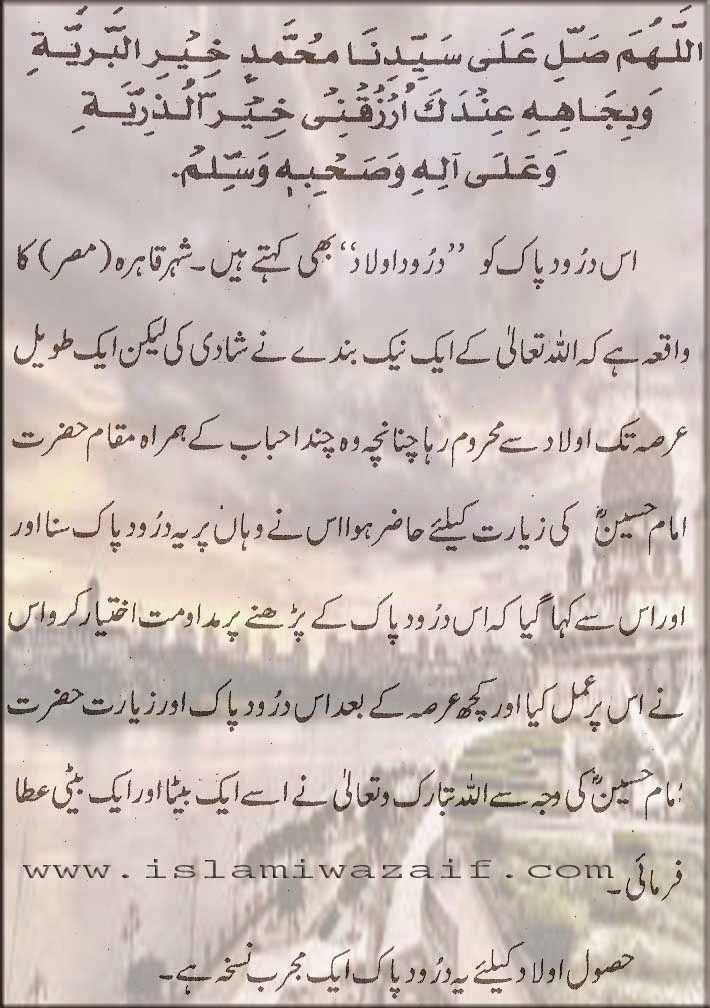 اَللّٰهُمَّ صَلِّ عَلَى سَيِّدِنَا مُحَمَّدٍ خَيْرِ الْبَرِيَّةِ
وَبِجَاهِهِ عِنْدَكَ اُرْزُقْنِيْ خَيْرَ الذُّرِّيَّةِ
وَعَلَى آلِهِ وَصَحْبِهٖ وَسَلِّمْ.
اس درُود پاک کو ”درُود اولاد“ بھی کہتے ہیں۔ شہر قاہرہ (مصر) کا
واقعہ ہے کہ اللہ تعالیٰ کے ایک نیک بندے نے شادی کی لیکن ایک طویل
عرصہ تک اولاد سے محروم رہا چنانچہ وہ چند احباب کے ہمراہ مقام حضرت
امام حسینؓ کی زیارت کیلئے حاضر ہوا اس نے وہاں پر یہ درُود پاک سنا اور
اور اس سے کہا گیا کہ اس درُود پاک کے پڑھنے پر مداومت اختیار کرو اس
نے اس پر عمل کیا اور کچھ عرصہ کے بعد اس درُود پاک اور زیارت حضرت
امام حسینؓ کی وجہ سے اللہ تبارک وتعالیٰ نے اسے ایک بیٹا اور ایک بیٹی عطا
فرمائی۔
www.islamiwazaif.com
حصول اولاد کیلئے یہ درُود پاک ایک مجرب نسخہ ہے۔